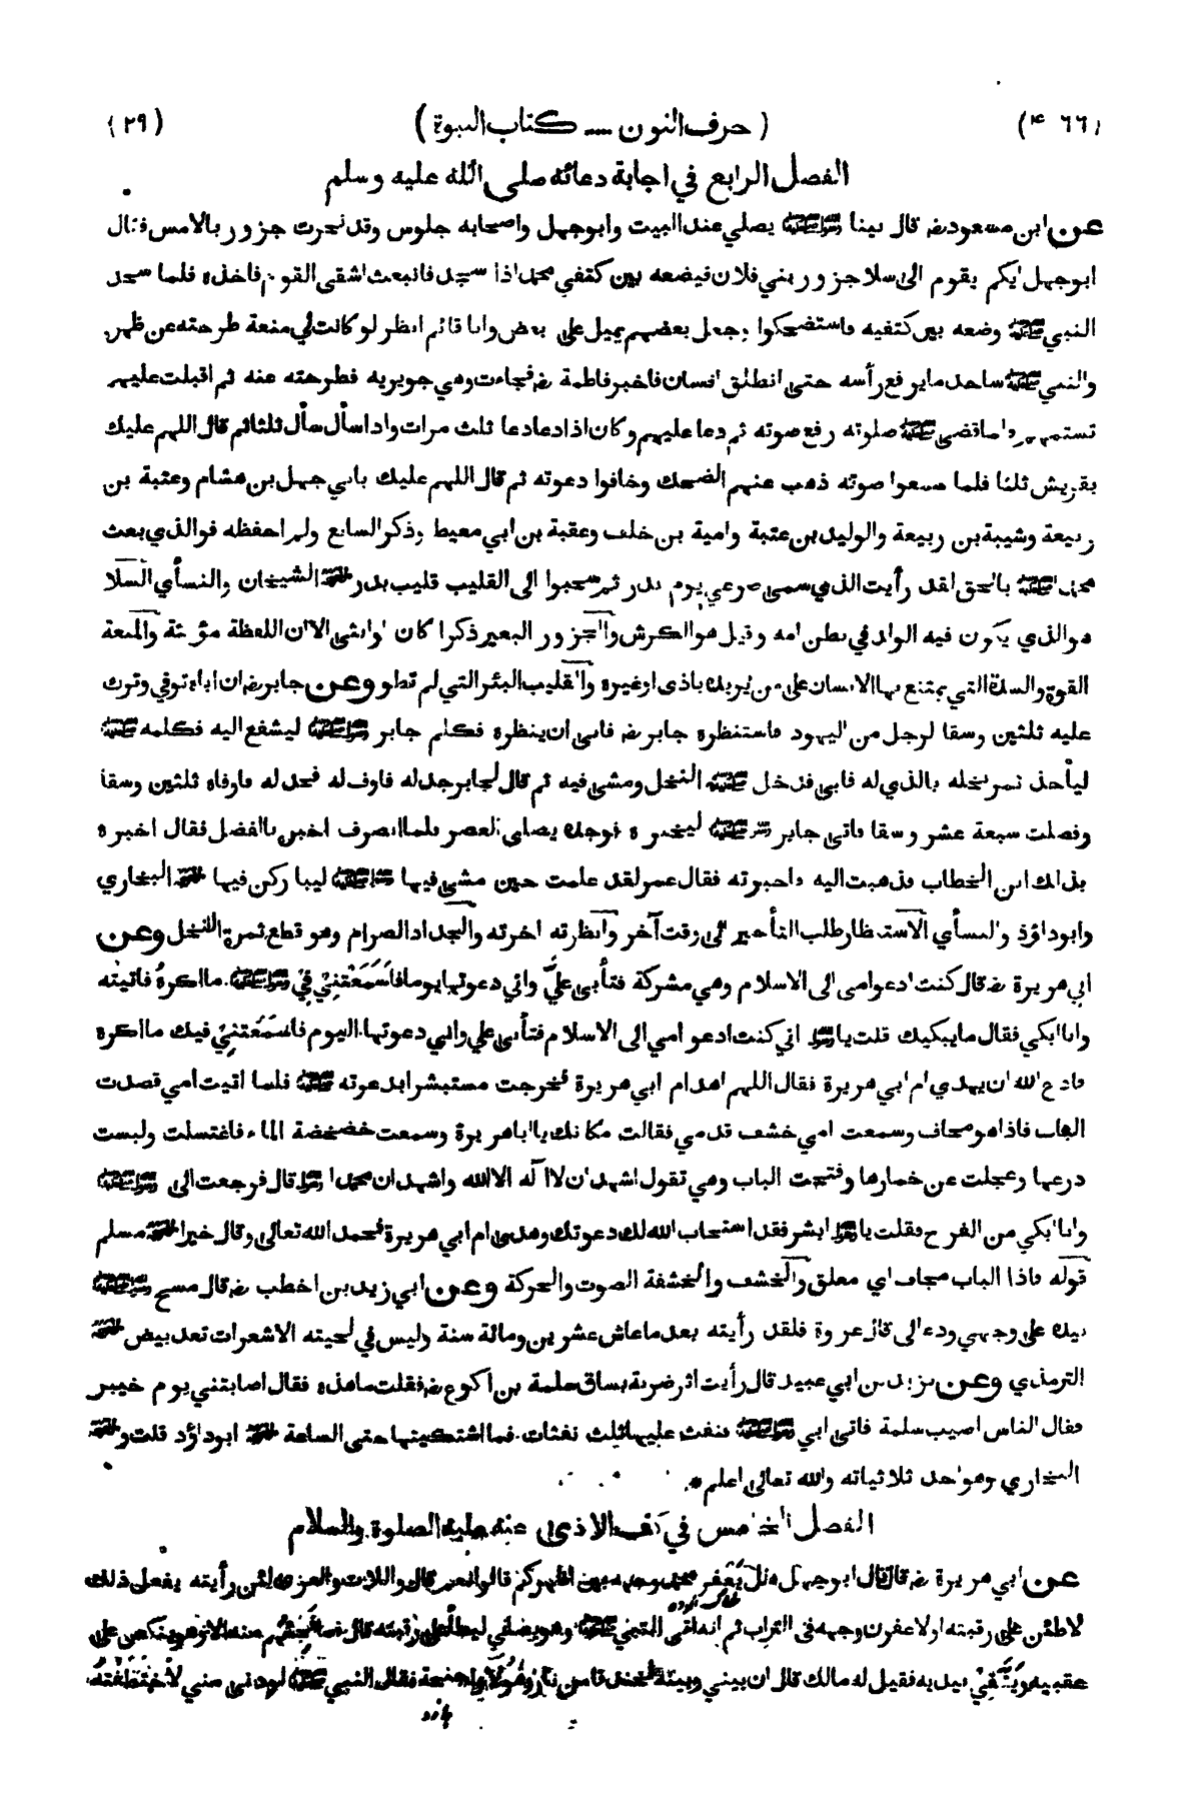 (٤٦٦) (حرف النون — كتاب النبوة) (٢٩)
الفصل الرابع في اجابة دعائه صلى الله عليه وسلم
عن ابن مسعود رضـ قال بينا رسول الله صلى الله عليه وسلم يصلي عند البيت وابوجهل واصحابه جلوس وقد نحرت جزور بالامس فقال
ابوجهل ايكم يقوم الى سلا جزور بني فلان فيضعه بين كتفي محمد اذا سجد فانبعث اشقى القوم فاخذه فلما سجد
النبي صلى الله عليه وسلم وضعه بين كتفيه فاستضحكوا وجعل بعضهم يميل على بعض وانا قائم انظر لو كانت لي منعة طرحته عن ظهره
والنبي صلى الله عليه وسلم ساجد مايرفع رأسه حتى انطلق انسان فاخبر فاطمة رضـ فجاءت وهي جويرية فطرحته عنه ثم اقبلت عليهم
تستمهم فلما قضى صلى الله عليه وسلم صلوته رفع صوته ثم دعا عليهم وكان اذا دعا دعا ثلث مرات واذا سأل سأل ثلثا ثم قال اللهم عليك
بقريش ثلثا فلما سمعوا صوته ذهب عنهم الضحك وخافوا دعوته ثم قال اللهم عليك بابي جهل بن هشام وعتبة بن
ربيعة وشيبة بن ربيعة والوليد بن عتبة وامية بن خلف وعقبة بن ابي معيط وذكر السابع ولم احفظه فوالذي بعث
محمدا صلى الله عليه وسلم بالحق لقد رأيت الذي سمى صرعى يوم بدر ثم سحبوا الى القليب قليب بدر الشيخان والنسأي السلا
هو الذي يكون فيه الولد في بطن امه وقيل هو الكرش والجزور البعير ذكرا كان او انثى الا ان اللفظة مؤنثة والمنعة
القوة والسلة التي يمتنع بها الانسان على من يريك باذى او غيره والقليب البئر التي لم تطو وعن جابر رضـ ان اباه توفي وترك
عليه ثلثين وسقا لرجل من اليهود فاستنظره جابر رضـ فابى ان ينظره فكلم جابر رسول الله صلى الله عليه وسلم ليشفع اليه فكلمه صلى الله عليه وسلم
ليأخذ ثمر نخله بالذي له فابى فدخل صلى الله عليه وسلم النخل ومشى فيه ثم قال لجابر جد له فاوف له فجد له فاوفاه ثلثين وسقا
وفضلت سبعة عشر وسقا فاتى جابر رسول الله صلى الله عليه وسلم ليخبره فوجده يصلي العصر فلما انصرف اخبره بالفضل فقال اخبره
بذلك ابن الخطاب فذهبت اليه فاخبرته فقال عمر لقد علمت حين مشى فيها رسول الله صلى الله عليه وسلم ليباركن فيها البخاري
وابوداؤد والنسأي الاستنظار طلب التأخير الى وقت آخر وانظرته اخرته والجداد الصرام وهو قطع ثمرة النخل وعن
ابي هريرة رضـ قال كنت ادعو امي الى الاسلام وهي مشركة فتأبى عليَّ واني دعوتها يوما فاَسْمَعَتْنِيْ فِيْ رسول الله صلى الله عليه وسلم ما اكرهُ فاتيته
وانا ابكي فقال مايبكيك قلت يا رسول الله اني كنت ادعو امي الى الاسلام فتأبى علي واني دعوتها اليوم فاسْمَعَتْنِيْ فيك ما اكره
فادع الله ان يهدي ام ابي هريرة فقال اللهم اهد ام ابي هريرة فخرجت مستبشرا بدعوته صلى الله عليه وسلم فلما اتيت امي قصدت
الباب فاذا هو مجاف وسمعت امي خشف قدمي فقالت مكانك يا ابا هريرة وسمعت خضخضة الماء فاغتسلت ولبست
درعها وعجلت عن خمارها وفتحت الباب وهي تقول اشهد ان لا اله الا الله واشهد ان محمدا رسول الله قال فرجعت الى رسول الله صلى الله عليه وسلم
وانا ابكي من الفرح فقلت يا رسول الله ابشر فقد استجاب الله لك دعوتك وهدى ام ابي هريرة فحمد الله تعالى وقال خيرا مسلم
قوله فاذا الباب مجاف اي معلق والخشف والخشفة الصوت والحركة وعن ابي زيد بن اخطب رضـ قال مسح رسول الله صلى الله عليه وسلم
بيده على وجهي ودعا لي قال عروة فلقد رأيته بعد ماعاش عشرين ومائة سنة وليس في لحيته الا شعرات تعد بيض
الترمذي وعن يزيد بن ابي عبيد قال رأيت اثر ضربة بساق سلمة بن اكوع رضـ فقلت ماهذه فقال اصابتني يوم خيبر
فقال الناس اصيب سلمة فاتى ابي رسول الله صلى الله عليه وسلم فنفث عليها ثلث نفثات فما اشتكيتها حتى الساعة ابوداؤد قلت و
البخاري وهو احد ثلاثياته والله تعالى اعلم *
الفصل الخامس في كف الاذى عنه عليه الصلوة والسلام
عن ابي هريرة رضـ قال قال ابوجهل هل يُعَفِّر محمد وجهه بين اظهركم قالوا نعم قال واللات والعزى لئن رأيته يفعل ذلك
لاطئن على رقبته او لاعفرن وجهه في التراب ثم انه اتى النبي صلى الله عليه وسلم وهو يصلي ليطأ على رقبته قال فما فجئهم منه الا وهو ينكص على
عقبيه وَيَتَّقِيْ بيديه فقيل له مالك قال ان بيني وبينه لخندقا من نار وهولا واجنحة فقال النبي صلى الله عليه وسلم لو دنى مني لاخْتَطَفَتْهُ